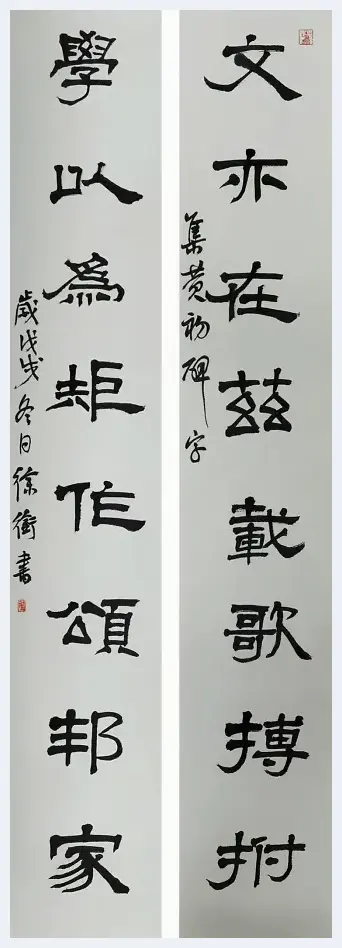 文亦在茲載歌搏拊
集黄初碑字
學以為矩作頌邦家
歲戊戌冬日徐衡書